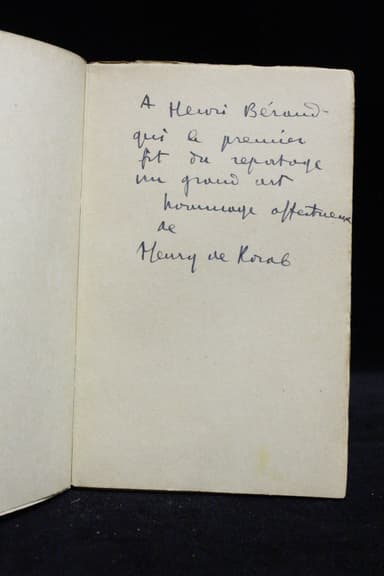 A Henri Béraud
qui le premier
fit du reportage
un grand art
hommage affectueux
de
Henry de Korab